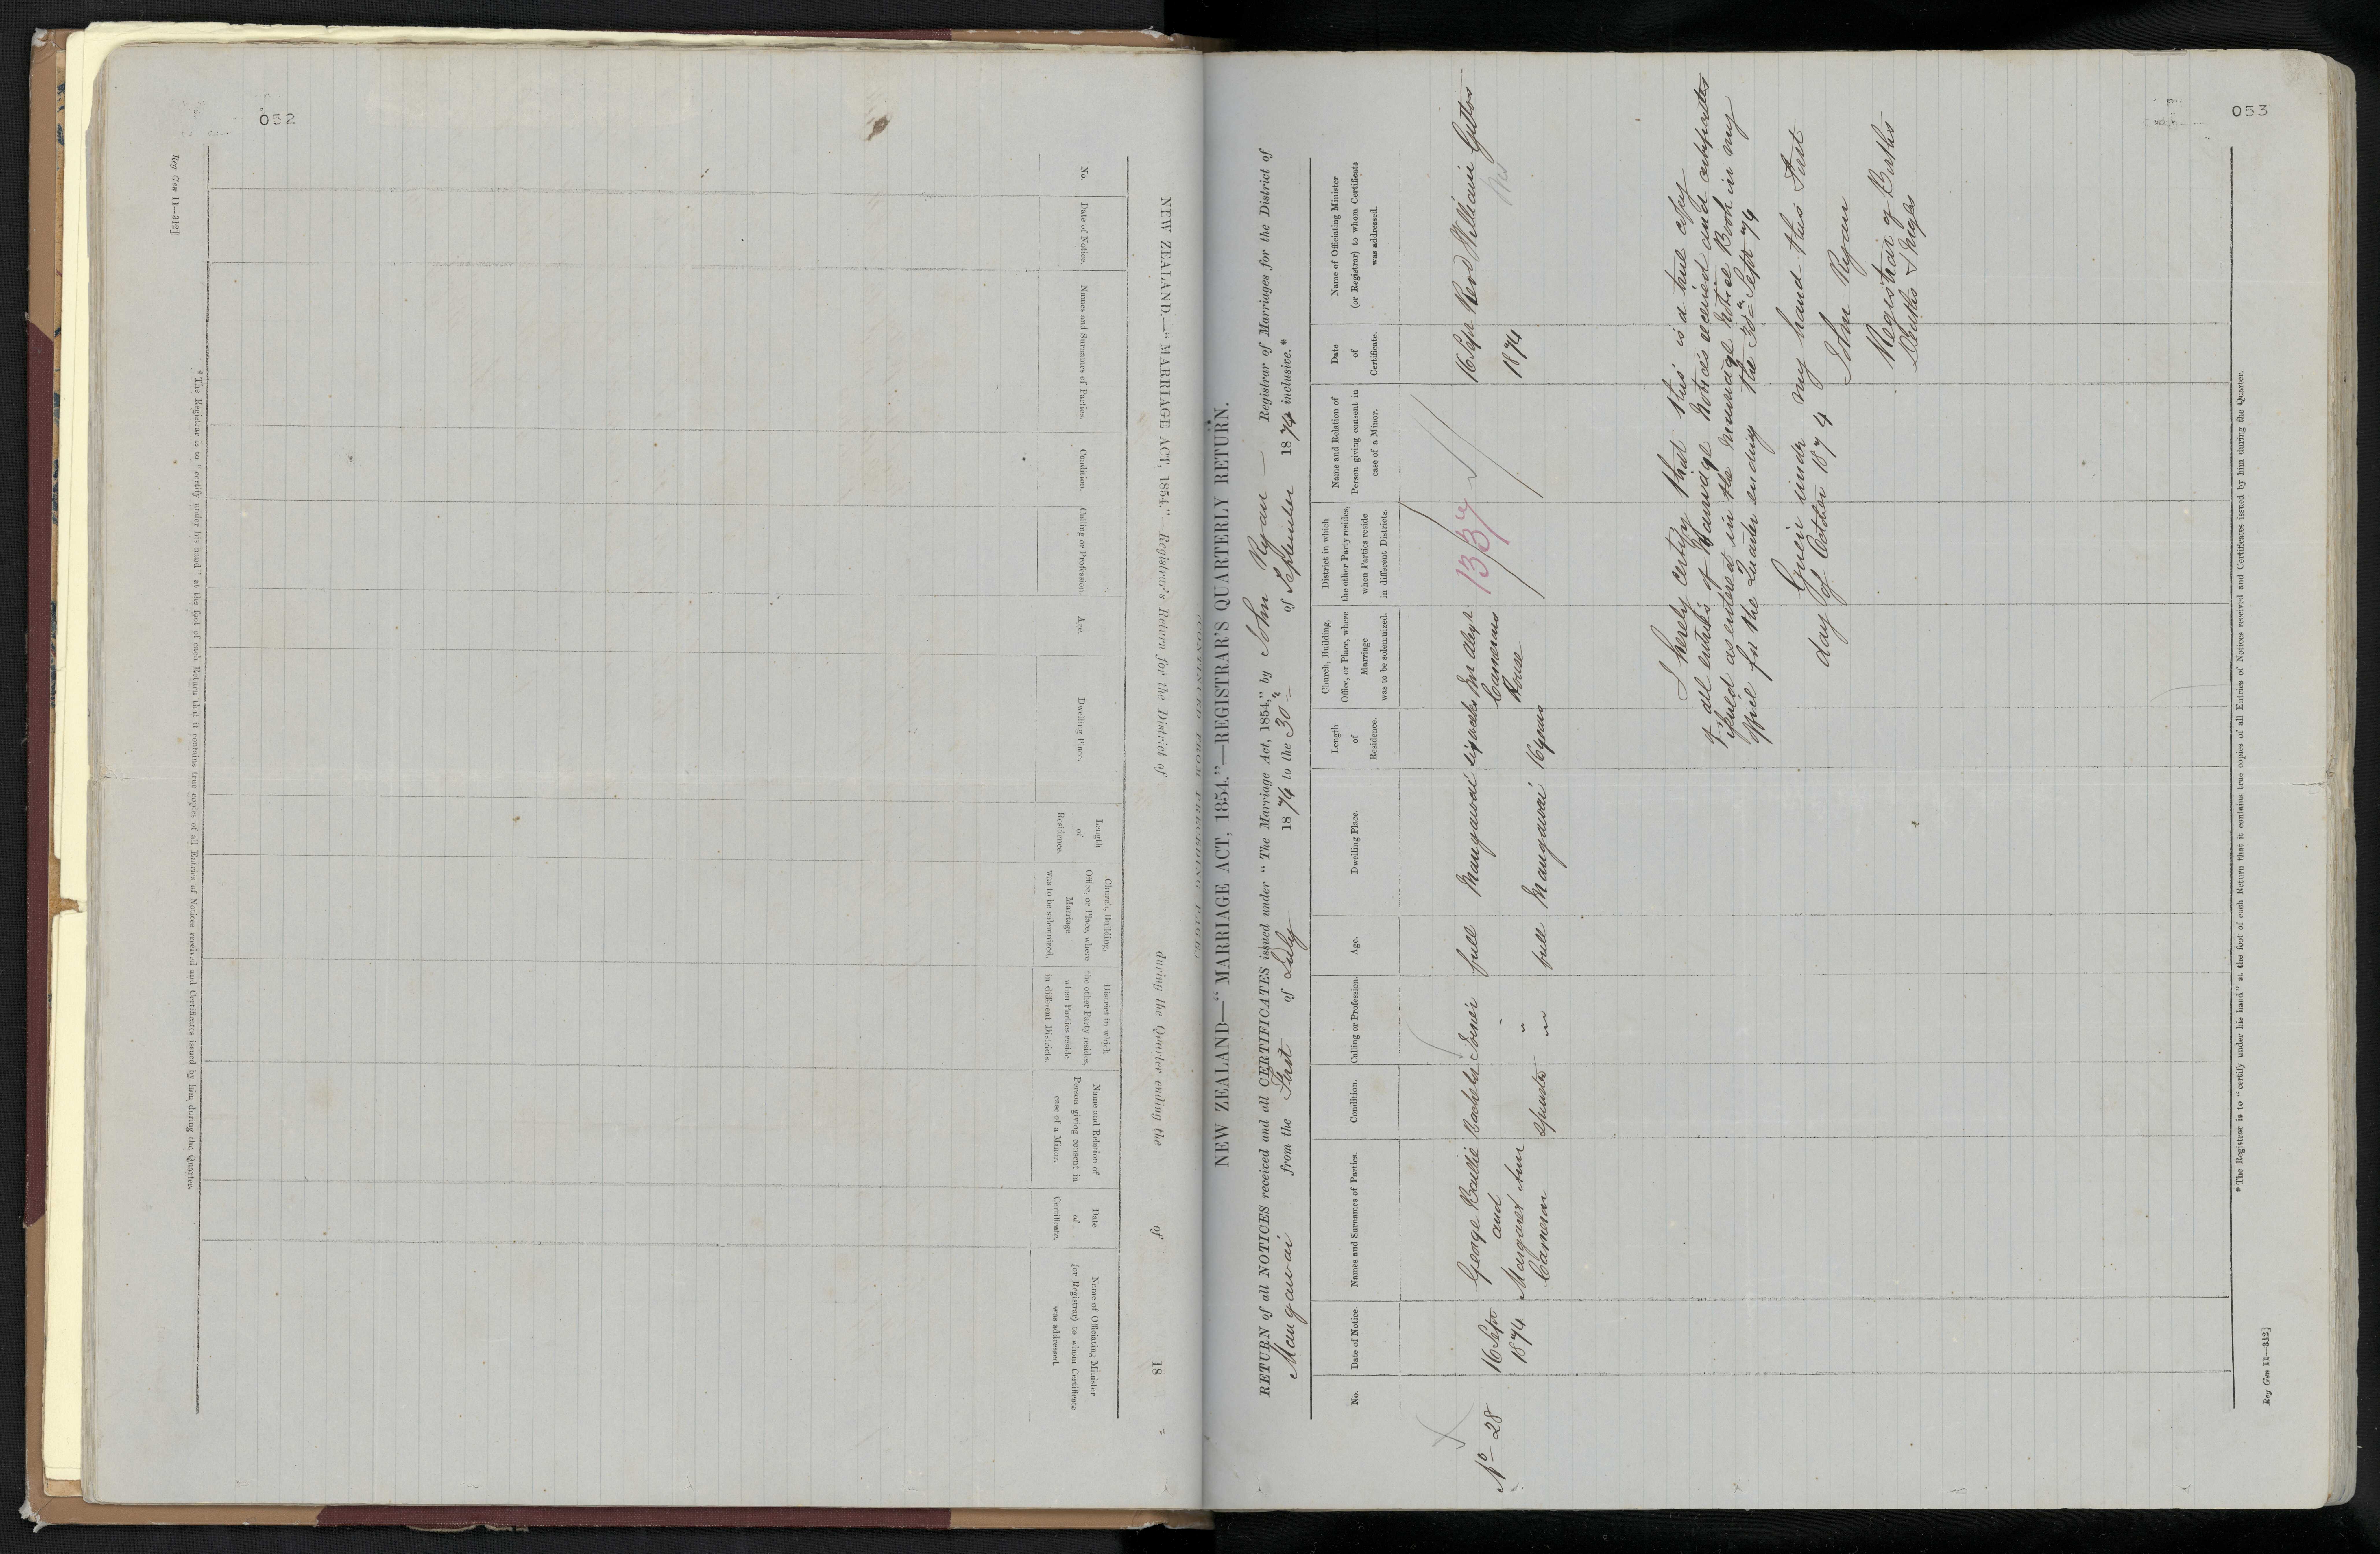 052
Reg Gen 11—312]
NEW ZEALAND.—"MARRIAGE ACT, 1854."—Registrar's Return for the District of during the Quarter ending the of 18
No.
Date of Notice.
Names and Surnames of Parties.
Condition.
Calling or Profession.
Age.
Dwelling Place.
Length
of
Residence.
Church, Building,
Office, or Place, where
Marriage
was to be solemnized.
District in which
the other Party resides,
when Parties reside
in different Districts.
Name and Relation of
Person giving consent in
case of a Minor.
Date
of
Certificate.
Name of Officiating Minister
(or Registrar) to whom Certificate
was addressed.
*The Registrar is to "certify under his hand" at the foot of each Return that it contains true copies of all Entries of Notices received and Certificates issued by him during the Quarter.
053
NEW ZEALAND—"MARRIAGE ACT, 1854."—REGISTRAR'S QUARTERLY RETURN.
RETURN of all NOTICES received and all CERTIFICATES issued under "The Marriage Act, 1854," by John Ryan — Registrar of Marriages for the District of
Mangawai from the First of July 1874 to the 30th of September 1874 inclusive.*
No.
Date of Notice.
Names and Surnames of Parties.
Condition.
Calling or Profession.
Age.
Dwelling Place.
Length
of
Residence.
Church, Building,
Office, or Place, where
Marriage
was to be solemnized.
District in which
the other Party resides,
when Parties reside
in different Districts.
Name and Relation of
Person giving consent in
case of a Minor.
Date
of
Certificate.
Name of Officiating Minister
(or Registrar) to whom Certificate
was addressed.
No 28
16 Sept
1874
George Baillie
and
Margaret Ann
Cameron
Bachelor
Spinster
Joiner
" "
full
full
Mangawai
Mangawai
six weeks
16 years
Mr Alexr
Camerons
House
1337
16 Sept
1874
Revd William Gittos
I hereby certify that this is a true copy
of all entries of Marriage Notices received and certificates
issued as entered in the Marriage Notice Book in my
office for the Quarter ending the 30th Sept 74
Given under my hand this First
day of October 1874
John Ryan
Registrar of Births
Deaths &
*The Registrar is to "certify under his hand" at the foot of each Return that it contains true copies of all Entries of Notices received and Certificates issued by him during the Quarter.
Reg Gen 11—312]